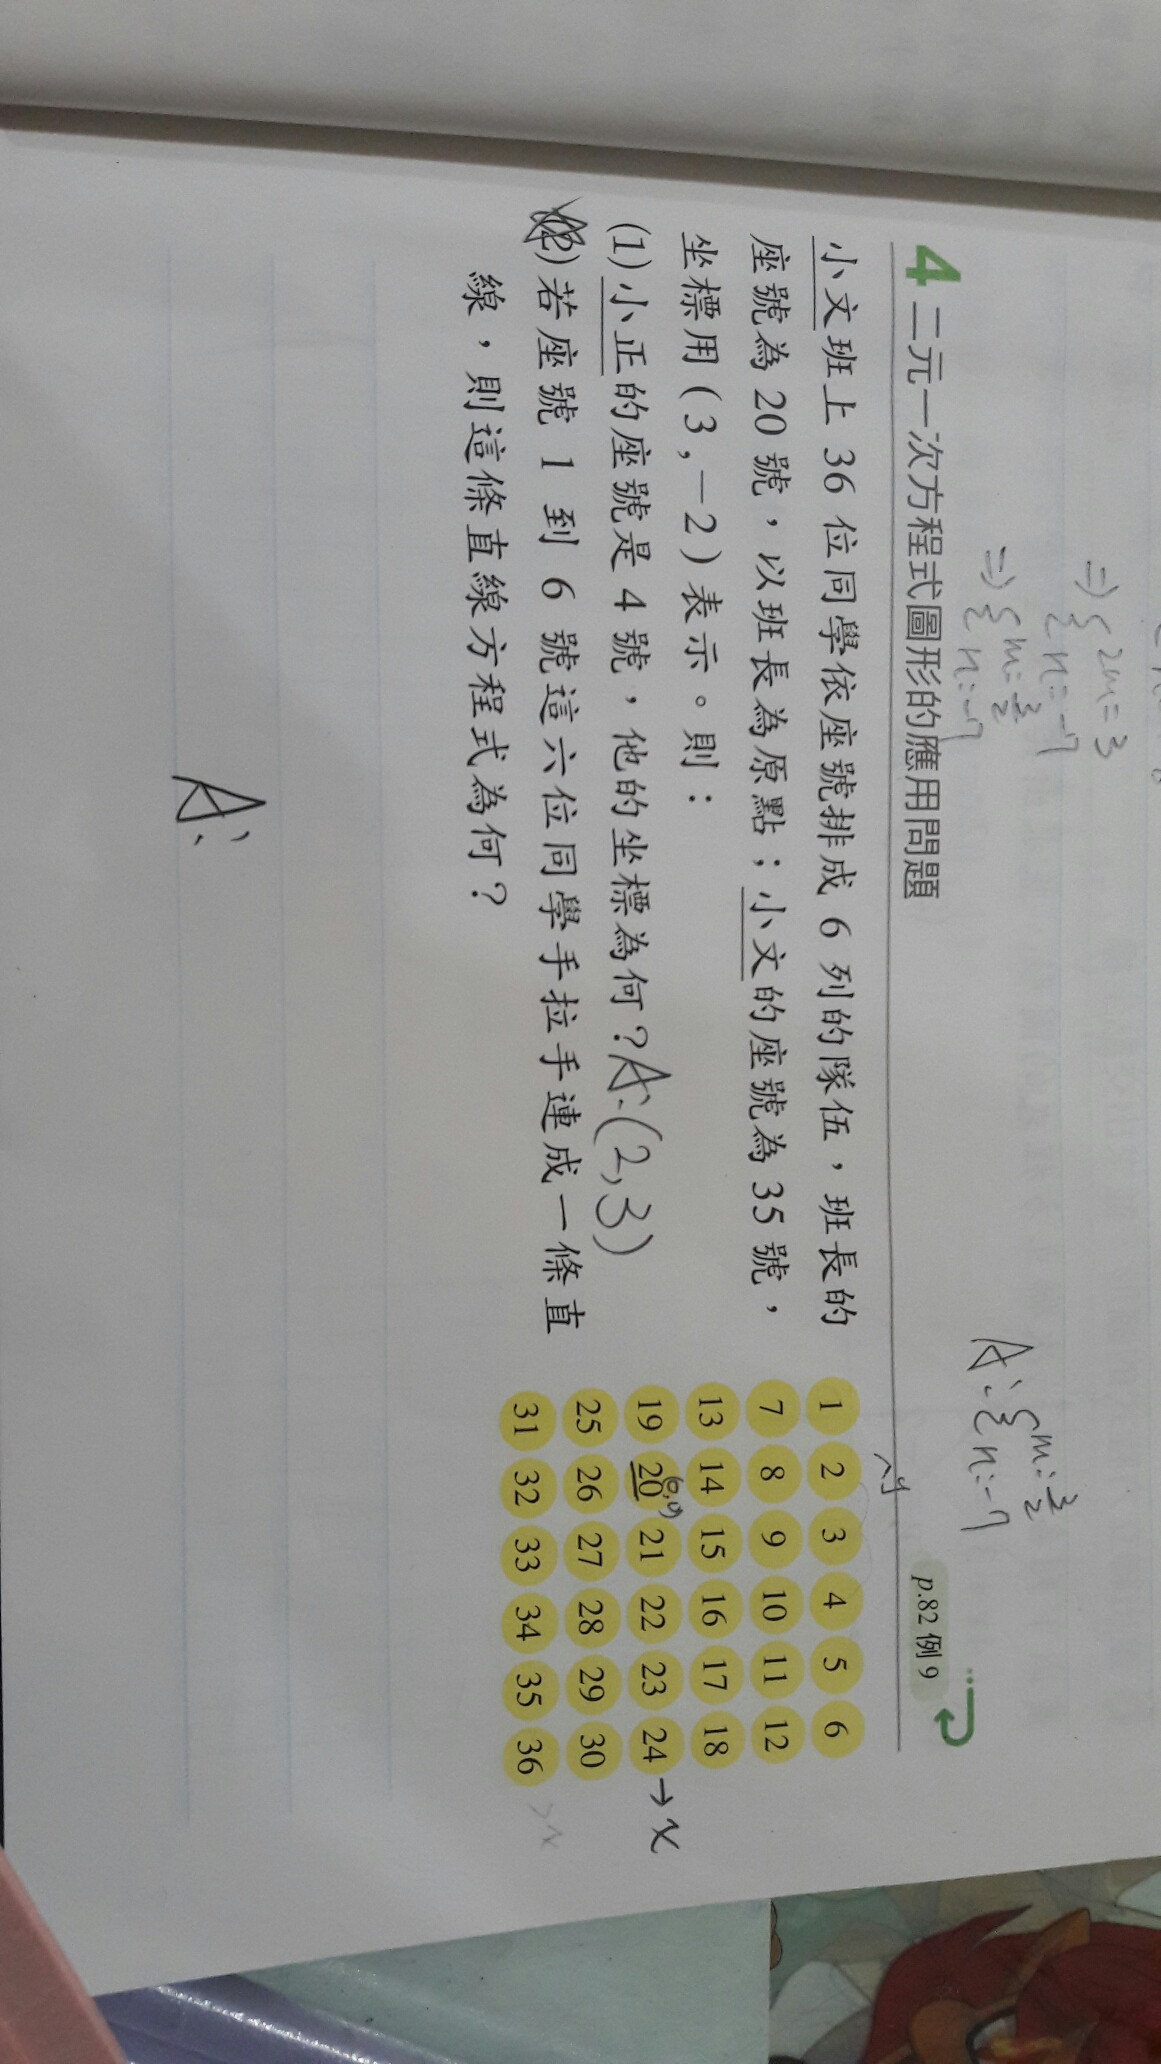 ⇒{2m=3
{n=-7
⇒{m=3/2
{n=-7
A:{m=3/2
{n=-7
4 二元一次方程式圖形的應用問題
p.82 例 9
小文班上 36 位同學依座號排成 6 列的隊伍，班長的
座號為 20 號，以班長為原點；小文的座號為 35 號，
坐標用(3,-2)表示。則：
(1)小正的座號是 4 號，他的坐標為何？A:(2,3)
(2)若座號 1 到 6 號這六位同學手拉手連成一條直
線，則這條直線方程式為何？
y
1 2 3 4 5 6
7 8 9 10 11 12
13 14 15 16 17 18
(0,0)
19 20 21 22 23 24 →x
25 26 27 28 29 30
31 32 33 34 35 36
A: